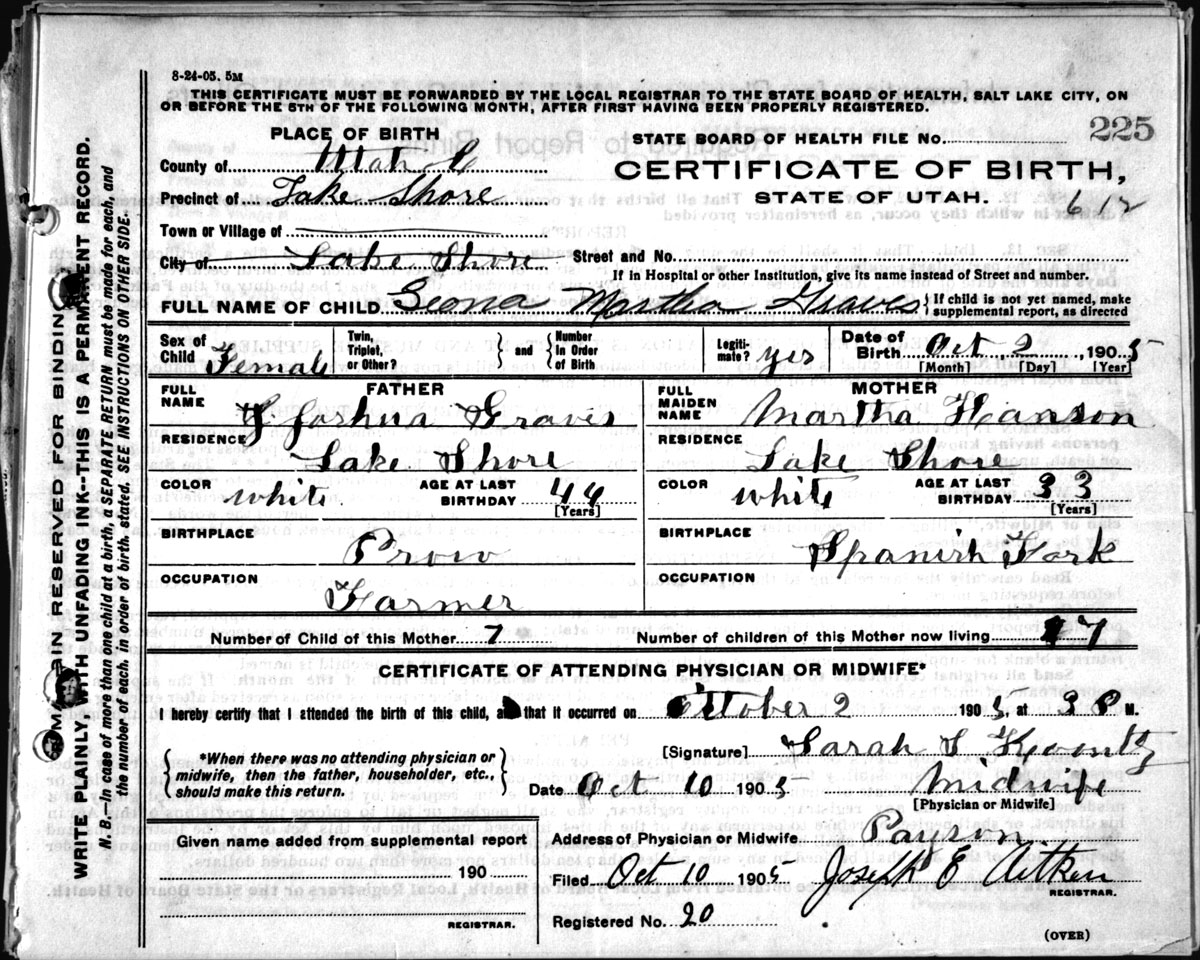 8-24-05. 5M
THIS CERTIFICATE MUST BE FORWARDED BY THE LOCAL REGISTRAR TO THE STATE BOARD OF HEALTH, SALT LAKE CITY, ON
OR BEFORE THE 5TH OF THE FOLLOWING MONTH, AFTER FIRST HAVING BEEN PROPERLY REGISTERED.
PLACE OF BIRTH
STATE BOARD OF HEALTH FILE No. 225
County of Utah Co
CERTIFICATE OF BIRTH,
Precinct of Lake Shore
STATE OF UTAH.
612
Town or Village of
City of Lake Shore Street and No.
If in Hospital or other Institution, give its name instead of Street and number.
FULL NAME OF CHILD Martha Graves } If child is not yet named, make supplemental report, as directed
Sex of Child Female Twin, Triplet, or Other? } and { Number in Order of Birth Legiti- mate? yes Date of Birth Oct 2, 1905
[Month] [Day] [Year]
FATHER MOTHER
FULL NAME Joshua Graves FULL MAIDEN NAME Martha Hanson
RESIDENCE Lake Shore RESIDENCE Lake Shore
COLOR white AGE AT LAST BIRTHDAY 44 [Years] COLOR white AGE AT LAST BIRTHDAY 33 [Years]
BIRTHPLACE Provo BIRTHPLACE Spanish Fork
OCCUPATION Farmer OCCUPATION
Number of Child of this Mother 7 Number of children of this Mother now living 7
CERTIFICATE OF ATTENDING PHYSICIAN OR MIDWIFE*
I hereby certify that I attended the birth of this child, and that it occurred on October 2 1905, at 3 P M.
{ *When there was no attending physician or midwife, then the father, householder, etc., should make this return. }
[Signature] Sarah S Koontz
Date Oct 10 1905 Midwife
[Physician or Midwife]
Given name added from supplemental report
190
REGISTRAR.
Address of Physician or Midwife Payson
Filed Oct 10 1905 Joseph E Aitken
REGISTRAR.
Registered No. 20
(OVER)
MARGAIN RESERVED FOR BINDING
WRITE PLAINLY WITH UNFADING INK--THIS IS A PERMANENT RECORD.
N.B.--In case of more than one child at a birth, a SEPARATE RETURN must be made for each, and
the number of each, in order of birth, stated. SEE INSTRUCTIONS ON OTHER SIDE.